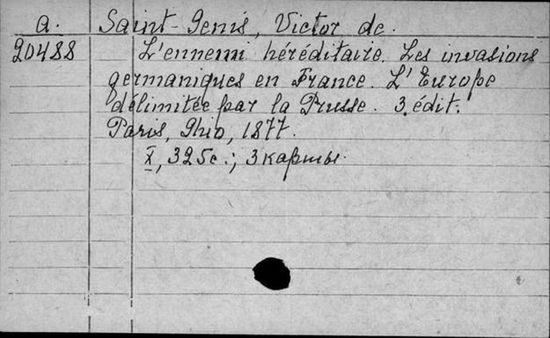 a. Saint-Genis, Victor de.
20488 L'ennemi héréditaire. Les invasions
germaniques en France. L'Europe
délimitée par la Prusse. 3. édit.
Paris, Ghio, 1877.
X, 325 c.; 3 карты.